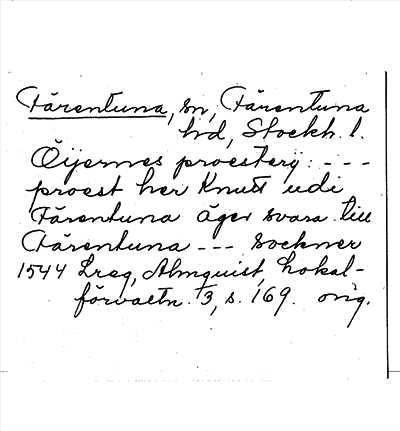 Färentuna, sn, Färentuna
hd, Stockh. l.
Öijernes proesterij: ---
proest her Knutt udi
Färentuna äger svara till
Färentuna --- sockner
1544 Lreg, Almquist, Lokal-
förvaltn. 3, s. 169. orig.